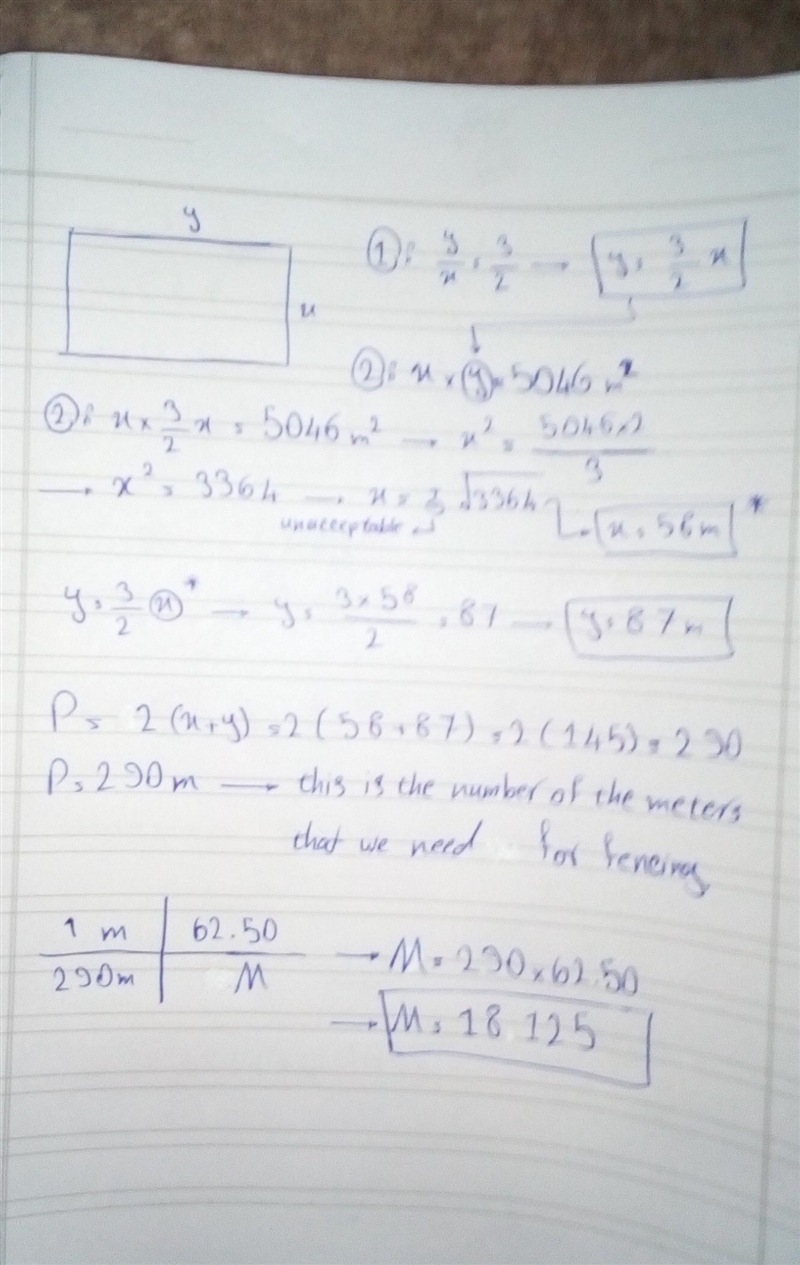 y
x
①: y/x = 3/2 → y = 3/2 x
②: x × y = 5046 m²
②: x × 3/2 x = 5046 m² → x² = 5046×2/3
→ x² = 3364 → x = ± √3364
unacceptable
x = 58 m *
y = 3/2 x * → y = 3×58/2 = 87 → y = 87 m
P = 2(x+y) = 2(58+87) = 2(145) = 290
P = 290 m → this is the number of the meters
that we need for fencing
1 m | 62.50
290m | M
→ M = 290 × 62.50
→ M = 18 125